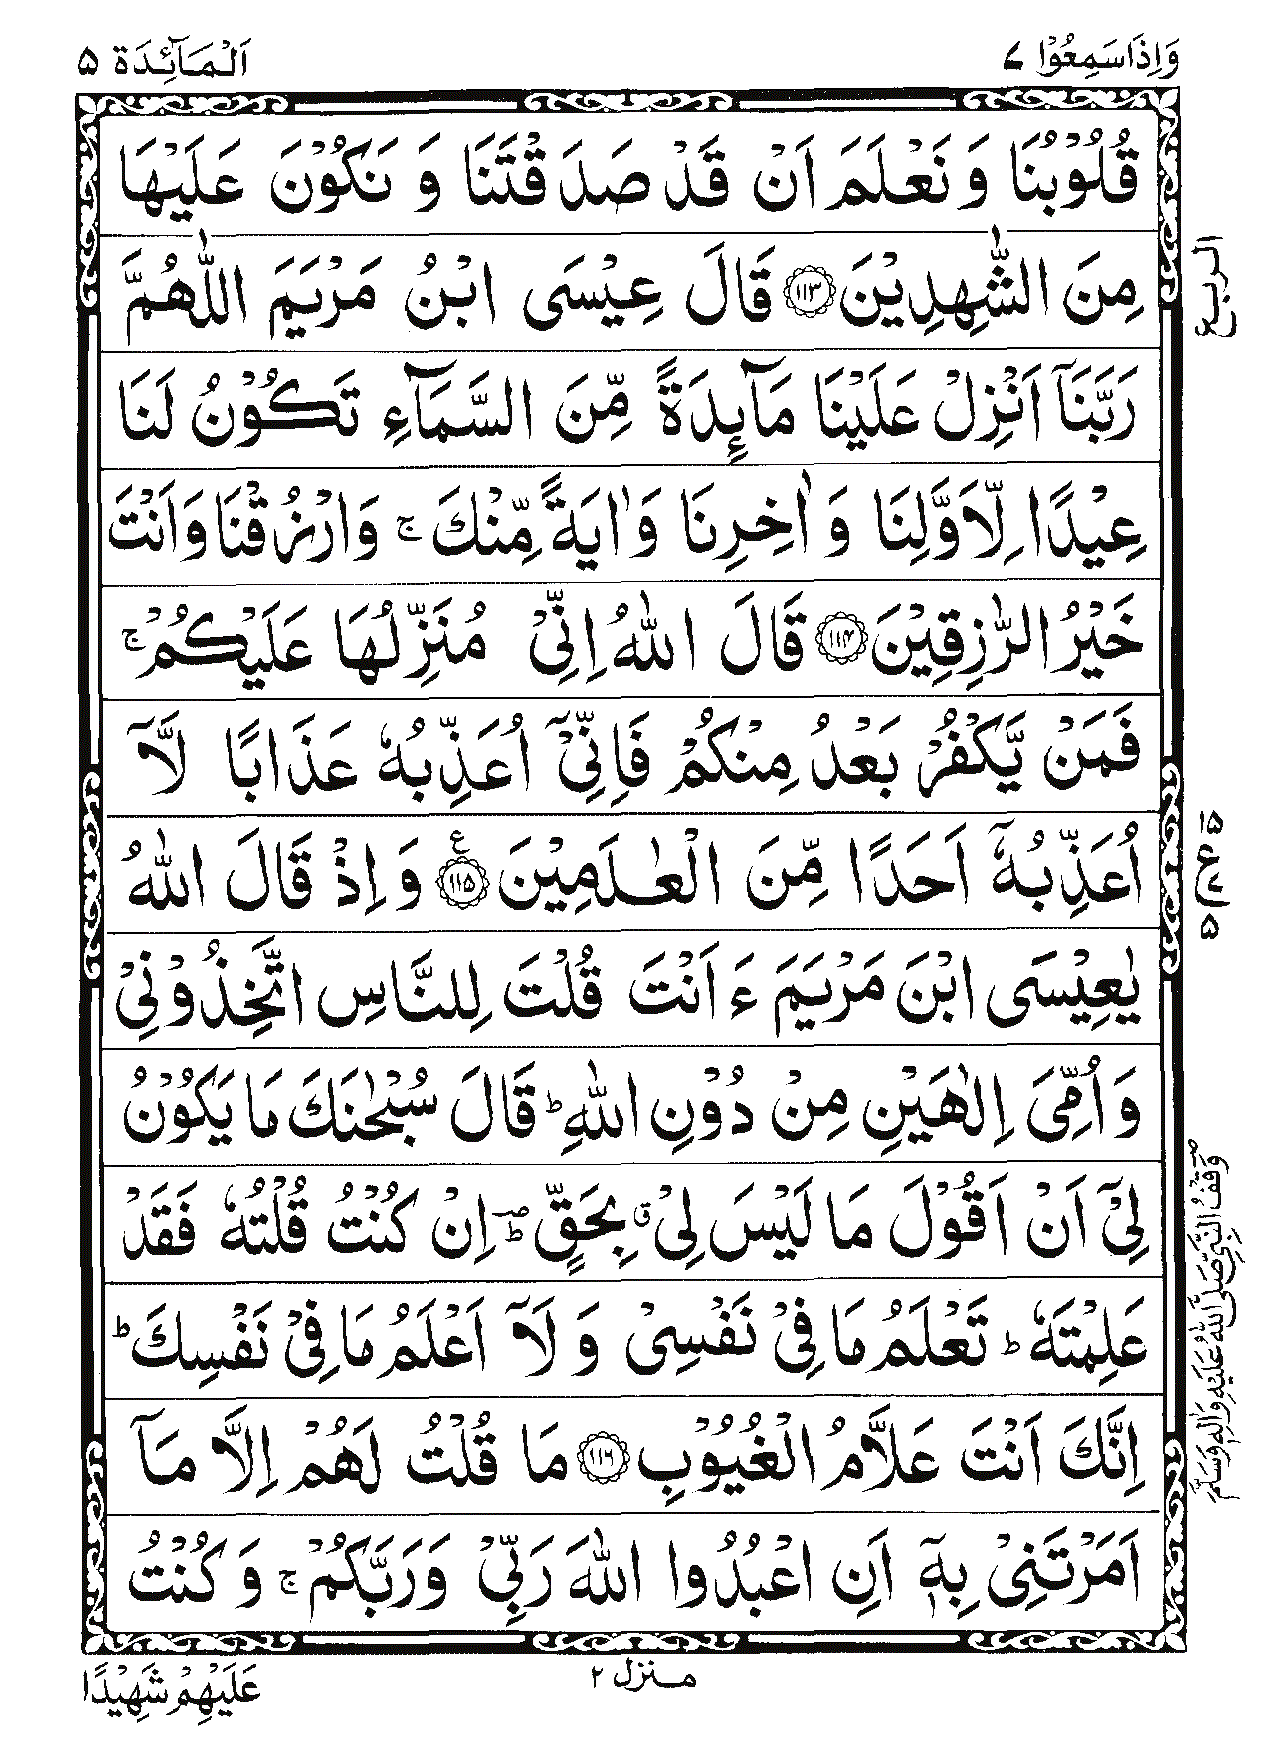 وَاِذَاسَمِعُوْا ۷
اَلْمَآئِدَة ۵
قُلُوْبُنَا وَ نَعْلَمَ اَنْ قَدْ صَدَقْتَنَا وَ نَكُوْنَ عَلَيْهَا
مِنَ الشّٰهِدِيْنَ ۱۱۳ قَالَ عِيْسَى ابْنُ مَرْيَمَ اللّٰهُمَّ
رَبَّنَآ اَنْزِلْ عَلَيْنَا مَآئِدَةً مِّنَ السَّمَآءِ تَكُوْنُ لَنَا
عِيْدًا لِّاَوَّلِنَا وَ اٰخِرِنَا وَ اٰيَةً مِّنْكَ ۚ وَ ارْزُقْنَا وَ اَنْتَ
خَيْرُ الرّٰزِقِيْنَ ۱۱۴ قَالَ اللّٰهُ اِنِّيْ مُنَزِّلُهَا عَلَيْكُمْ ۚ
فَمَنْ يَّكْفُرْ بَعْدُ مِنْكُمْ فَاِنِّيْٓ اُعَذِّبُهٗ عَذَابًا لَّآ
اُعَذِّبُهٗٓ اَحَدًا مِّنَ الْعٰلَمِيْنَ ۱۱۵ ع وَ اِذْ قَالَ اللّٰهُ
يٰعِيْسَى ابْنَ مَرْيَمَ ءَ اَنْتَ قُلْتَ لِلنَّاسِ اتَّخِذُوْنِيْ
وَ اُمِّيَ اِلٰهَيْنِ مِنْ دُوْنِ اللّٰهِ ؕ قَالَ سُبْحٰنَكَ مَا يَكُوْنُ
لِيْٓ اَنْ اَقُوْلَ مَا لَيْسَ لِيْ ۗ بِحَقٍّ ؕ اِنْ كُنْتُ قُلْتُهٗ فَقَدْ
عَلِمْتَهٗ ؕ تَعْلَمُ مَا فِيْ نَفْسِيْ وَ لَآ اَعْلَمُ مَا فِيْ نَفْسِكَ ؕ
اِنَّكَ اَنْتَ عَلَّامُ الْغُيُوْبِ ۱۱۶ مَا قُلْتُ لَهُمْ اِلَّا مَآ
اَمَرْتَنِيْ بِهٖٓ اَنِ اعْبُدُوا اللّٰهَ رَبِّيْ وَ رَبَّكُمْ ۚ وَ كُنْتُ
الربع
۱۵
ع
۵
وَقْفُ النَّبِيِّ صَلَّى اللّٰهُ عَلَيْهِ وَاٰلِهٖ وَسَلَّمَ
منزل ۲
عَلَيْهِمْ شَهِيْدًا